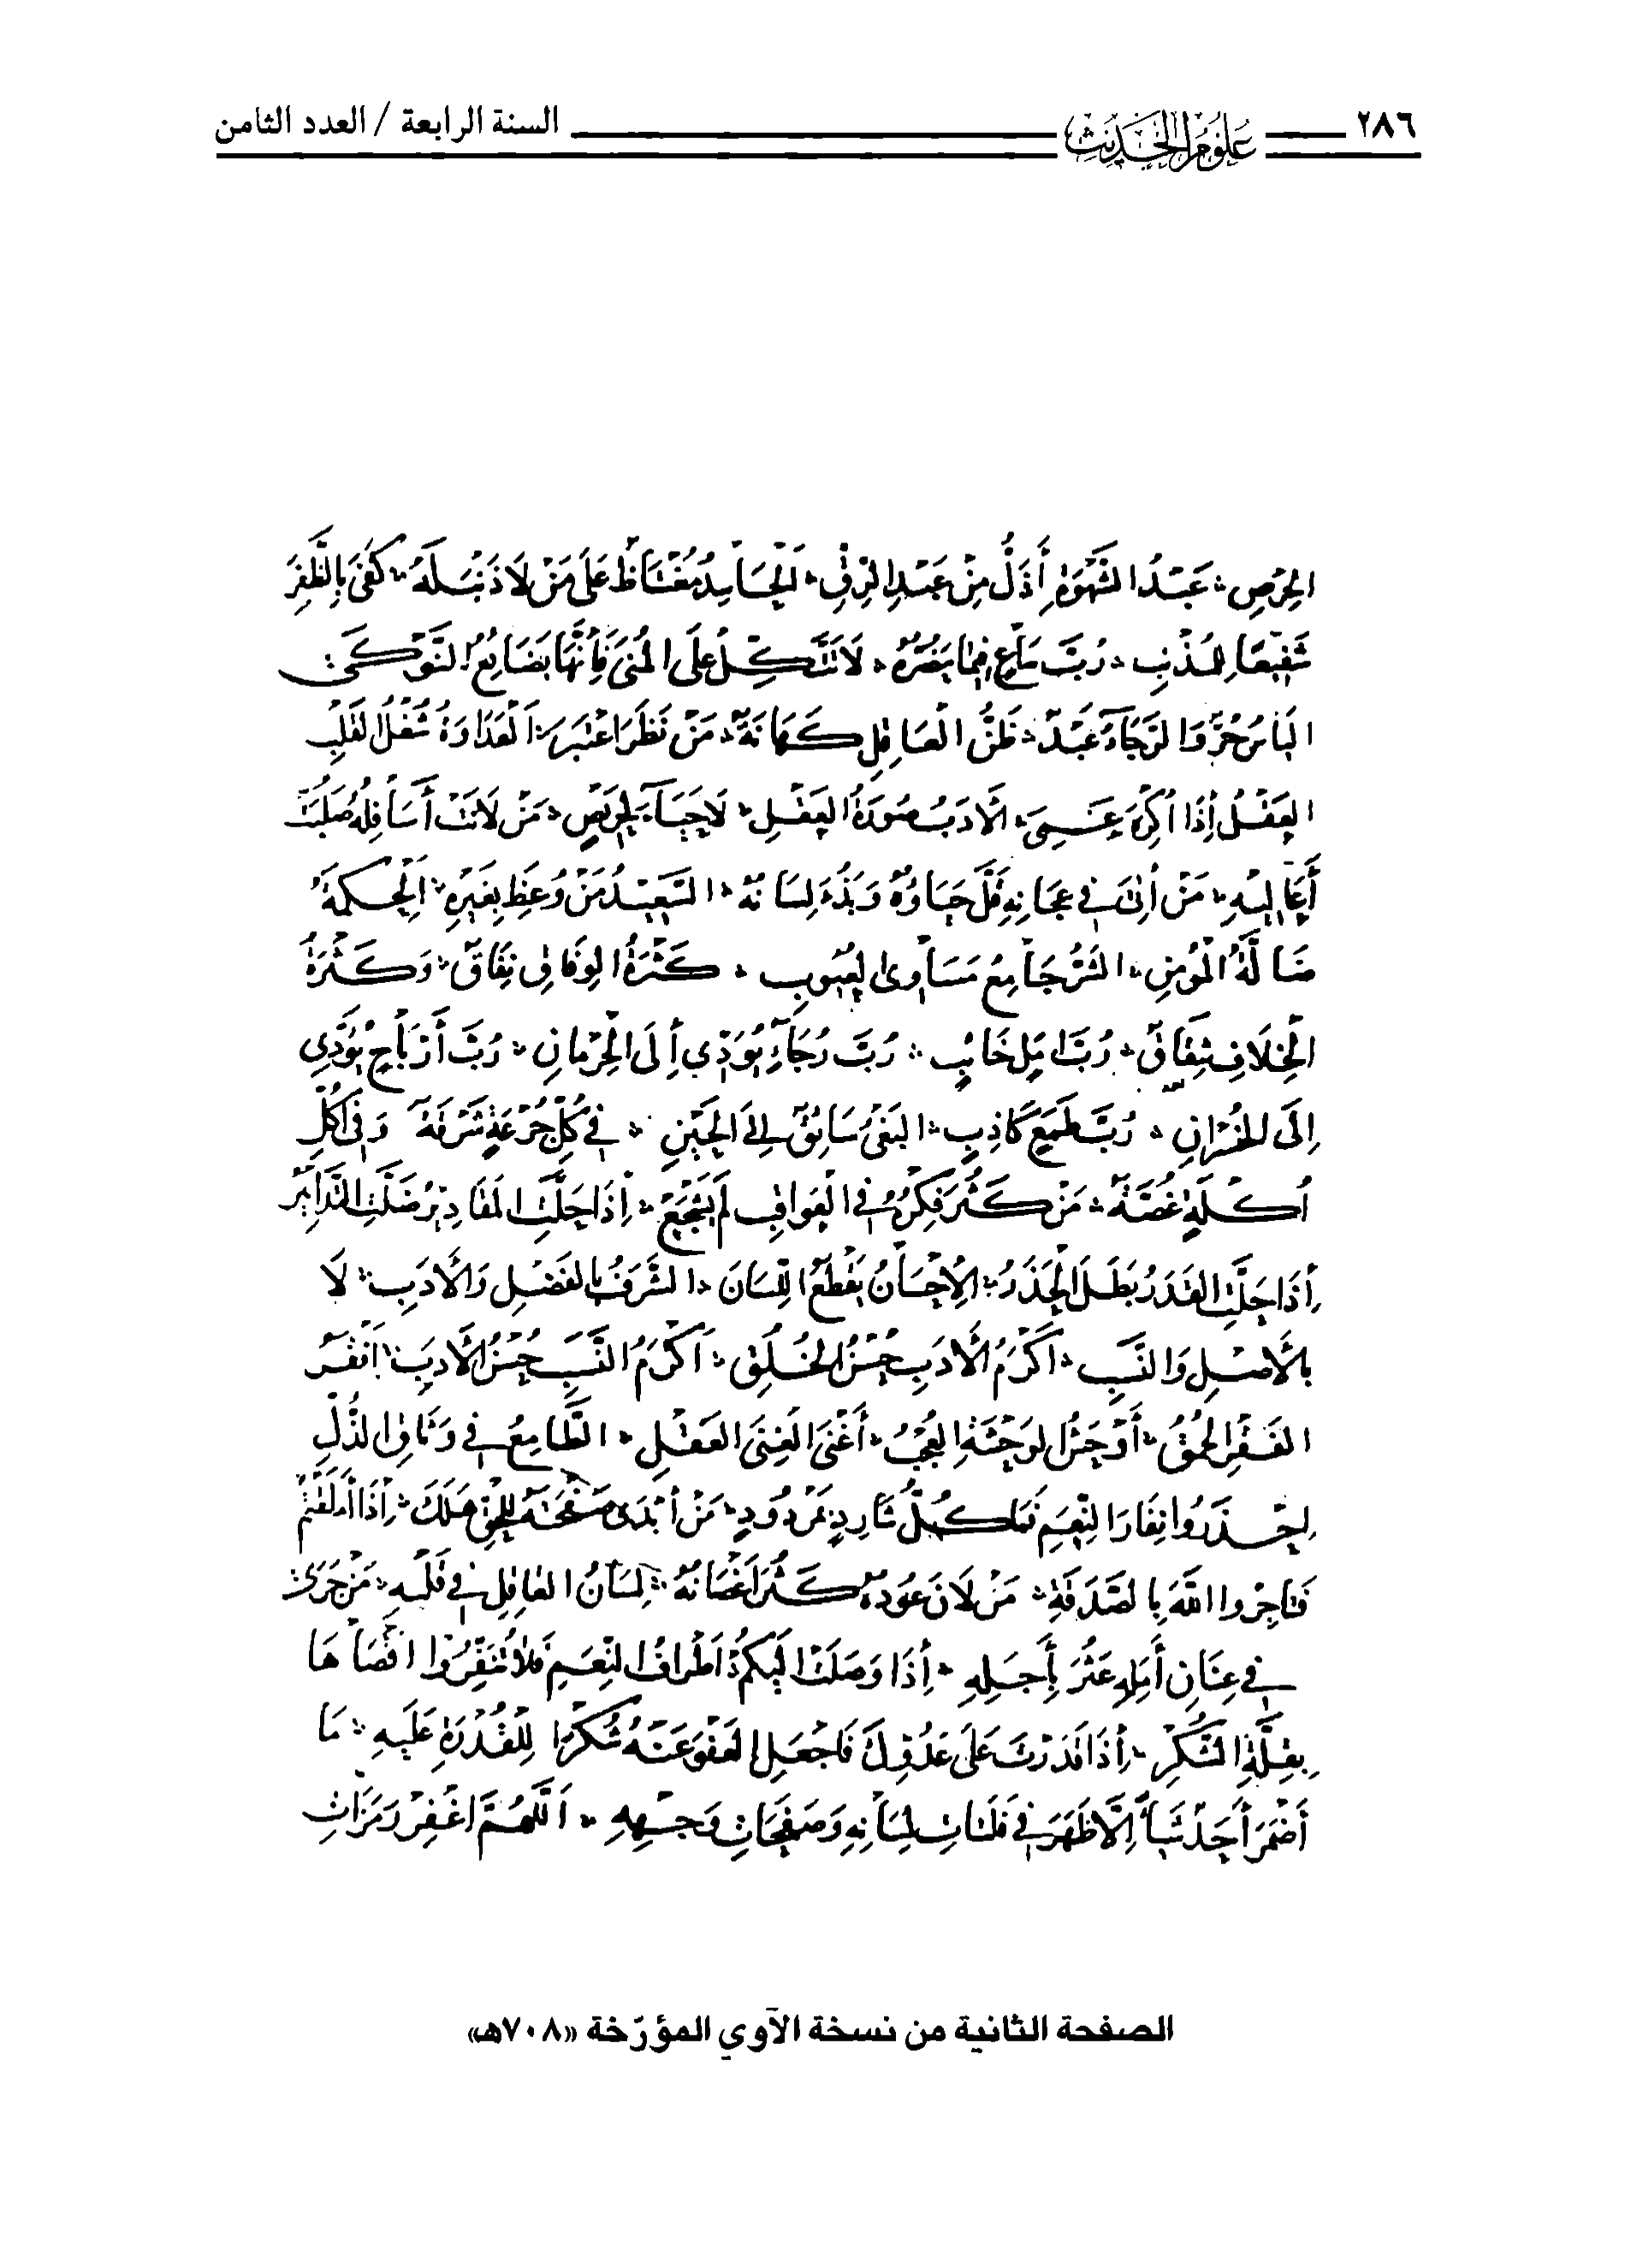 ٢٨٦ علوم الحديث السنة الرابعة / العدد الثامن
الحِرْصِ عَبْدُ الشَّهْوَةِ أَذَلُّ مِنْ عَبْدِ الرِّقِّ الحَاسِدُ مُغْتَاظٌ عَلَى مَنْ لَا ذَنْبَ لَهُ كَفَى بِالظَّفَرِ
شَفِيعًا لِلمُذْنِبِ رُبَّ سَاعٍ فِيمَا يَضُرُّهُ لَا تَتَّكِلْ عَلَى المُنَى فَإِنَّهَا بَضَائِعُ النَّوْكَى
اليَأسُ حُرٌّ وَالرَّجَاءُ عَبْدٌ ظَنُّ العَاقِلِ كَهَانَةٌ مَنْ نَظَرَ اعْتَبَرَ العَدَاوَةُ شُغْلُ القَلْبِ
القَلْبُ إِذَا أُكْرِهَ عَمِيَ الأَدَبُ صُورَةُ العَقْلِ لَا حَيَاءَ لِحَرِيصٍ مَنْ لَانَتْ أَسَافِلُهُ صَلُبَتْ
أَعَالِيهِ مَنْ أُتِيَ فِي عِجَانِهِ قَلَّ حَيَاؤُهُ وَبَذُءَ لِسَانُهُ السَّعِيدُ مَنْ وُعِظَ بِغَيْرِهِ الحِكْمَةُ
ضَالَّةُ المُؤْمِنِ الشَّرُّ جَامِعُ مَسَاوِئِ العُيُوبِ كَثْرَةُ الوِفَاقِ نِفَاقٌ وَكَثْرَةُ
الخِلَافِ شِقَاقٌ رُبَّ آمِلٍ خَائِبٍ رُبَّ رَجَاءٍ يُؤَدِّي إِلَى الحِرْمَانِ رُبَّ أَرْبَاحٍ تُؤَدِّي
إِلَى الخُسْرَانِ رُبَّ طَمَعٍ كَاذِبٍ البَغْيُ سَائِقٌ إِلَى الحَيْنِ فِي كُلِّ جُرْعَةٍ شَرْقَةٌ وَفِي كُلِّ
أُكْلَةٍ غُصَّةٌ مَنْ كَثُرَ فِكْرُهُ فِي العَوَاقِبِ لَمْ يَشْجُعْ إِذَا حَلَّتِ المَقَادِيرُ ضَلَّتِ التَّدَابِيرُ
إِذَا حَلَّ القَدَرُ بَطَلَ الحَذَرُ الإِحْسَانُ يَقْطَعُ اللِّسَانَ الشَّرَفُ بِالفَضْلِ وَالأَدَبِ لَا
بِالأَصْلِ وَالنَّسَبِ أَكْرَمُ الأَدَبِ حُسْنُ الخُلُقِ أَكْرَمُ النَّسَبِ حُسْنُ الأَدَبِ أَفْقَرُ
الفَقْرِ الحُمْقُ أَوْحَشُ الوَحْشَةِ العُجْبُ أَغْنَى الغِنَى العَقْلُ الطَّامِعُ فِي وَثَاقِ الذُّلِّ
احْذَرُوا نِفَارَ النِّعَمِ فَمَا كُلُّ شَارِدٍ بِمَرْدُودٍ مَنْ أَبْدَى صَفْحَتَهُ لِلْحَقِّ هَلَكَ إِذَا أَمْلَقْتُمْ
فَتَاجِرُوا اللهَ بِالصَّدَقَةِ مَنْ لَانَ عُودُهُ كَثُرَ أَغْصَانُهُ لِسَانُ العَاقِلِ فِي قَلْبِهِ مَنْ جَرَى
فِي عِنَانِ أَمَلِهِ عَثَرَ بِأَجَلِهِ إِذَا وَصَلَتْ إِلَيْكُمْ أَطْرَافُ النِّعَمِ فَلَا تُنَفِّرُوا أَقْصَاهَا
بِقِلَّةِ الشُّكْرِ إِذَا قَدَرْتَ عَلَى عَدُوِّكَ فَاجْعَلِ العَفْوَ عَنْهُ شُكْرًا لِلْقُدْرَةِ عَلَيْهِ مَا
أَضْمَرَ أَحَدٌ شَيْئًا إِلَّا ظَهَرَ فِي فَلَتَاتِ لِسَانِهِ وَصَفَحَاتِ وَجْهِهِ اللَّهُمَّ اغْفِرْ رَمَزَاتِ
الصفحة الثانية من نسخة الآوي المؤرّخة «٧٠٨هـ»